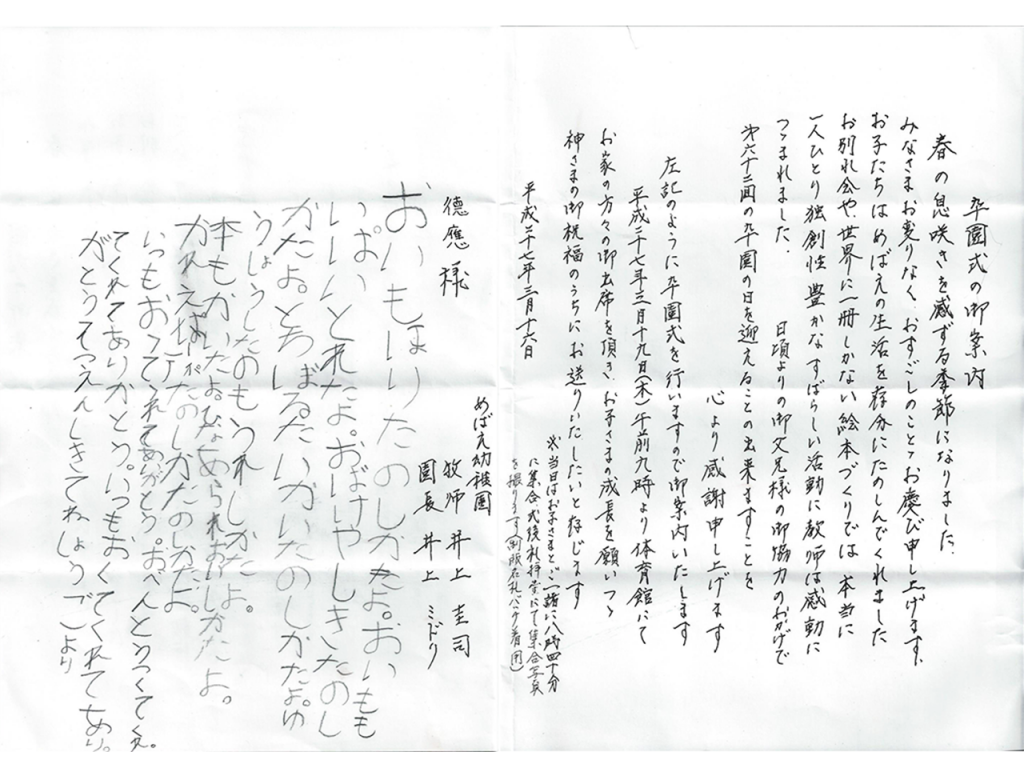 卒園式の御案内
春の息咲きを感ずる季節になりました。
みなさまお変りなく、おすごしのことゝお慶び申し上げます。
お子たちはめばえの生活を存分にたのしんでくれました
お別れ会や、世界に一冊しかない絵本づくりでは、本当に
一人ひとり独創性豊かなすばらしい活動に教師は感動に
つゝまれました　日頃よりの御父兄様の御協力のおかげで
第六十二回の卒園の日を迎えることの出来ますことを
心より感謝申し上げます
左記のように卒園式を行いますので御案内いたします
平成二十七年三月十九日(木)午前九時より体育館にて
お家の方々の御出席を頂き、お子さまの成長を願いつゝ
神さまの御祝福のうちにお送りいたしたいと存じます
※当日はお子さまとご一緒に八時四十分
に集合、式後礼拝堂にて集合写真
を撮ります
平成二十七年三月十六日
めばえ幼稚園
牧師　井上　圭司
園長　井上　ミドリ
德應　様
おいもほりたのしかたよ。おいもも
いぱいとれたよ。おばけやしきたのし
かたよ。とちぼるだいかいたのしかたよ。ゆ
うしょうしたのもうれしかたよ。
本もかいたよ。
たのしかたのしかたよ。
いつもおくてくれてありがとう。おべんとうつくてくれ
てくれてありがとう。いつもおくてくれてあり
がとうそつえんしきてね
より